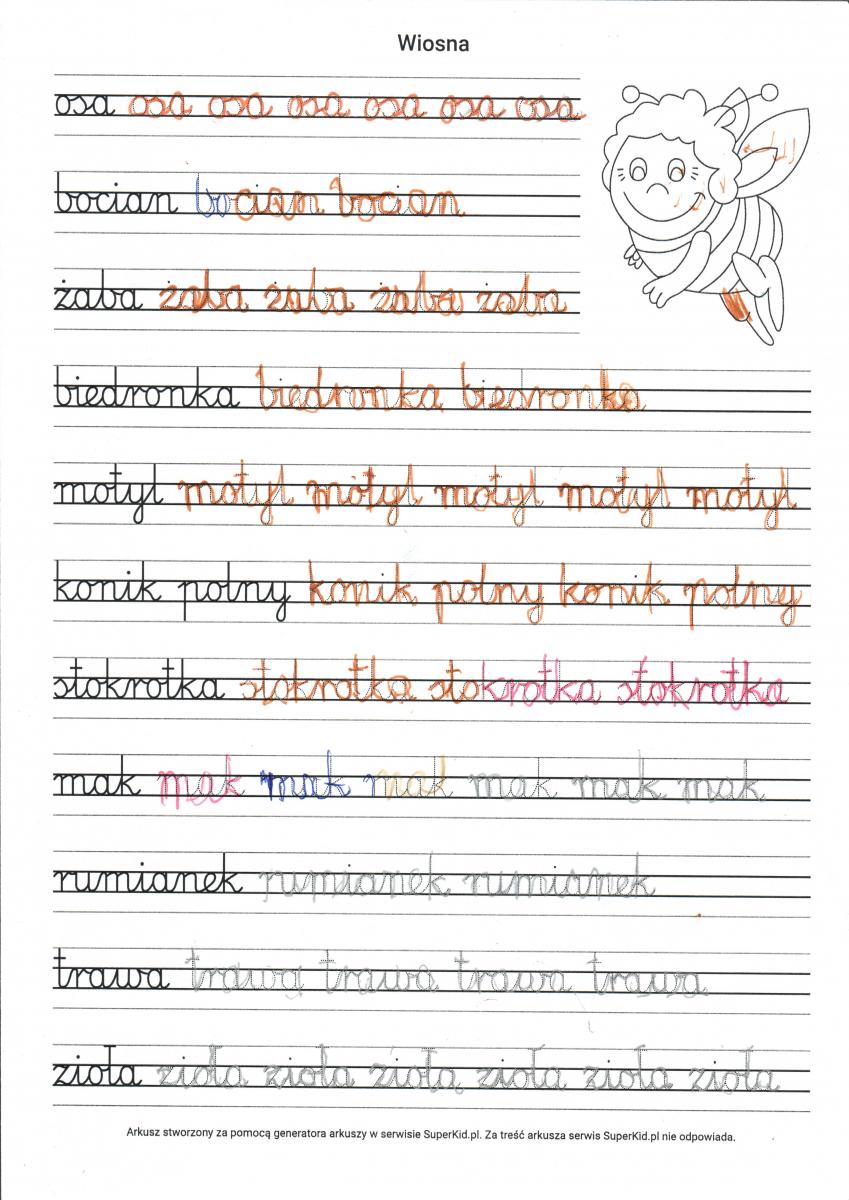 Wiosna
osa osa osa osa osa osa osa
bocian bocian bocian
żaba żaba żaba żaba żaba
biedronka biedronka biedronka
motyl motyl motyl motyl motyl motyl
konik polny konik polny konik polny
stokrotka stokrotka stokrotka stokrotka
mak mak mak mak mak mak mak
rumianek rumianek rumianek
trawa trawa trawa trawa trawa
zioła zioła zioła zioła zioła zioła zioła
Arkusz stworzony za pomocą generatora arkuszy w serwisie SuperKid.pl. Za treść arkusza serwis SuperKid.pl nie odpowiada.